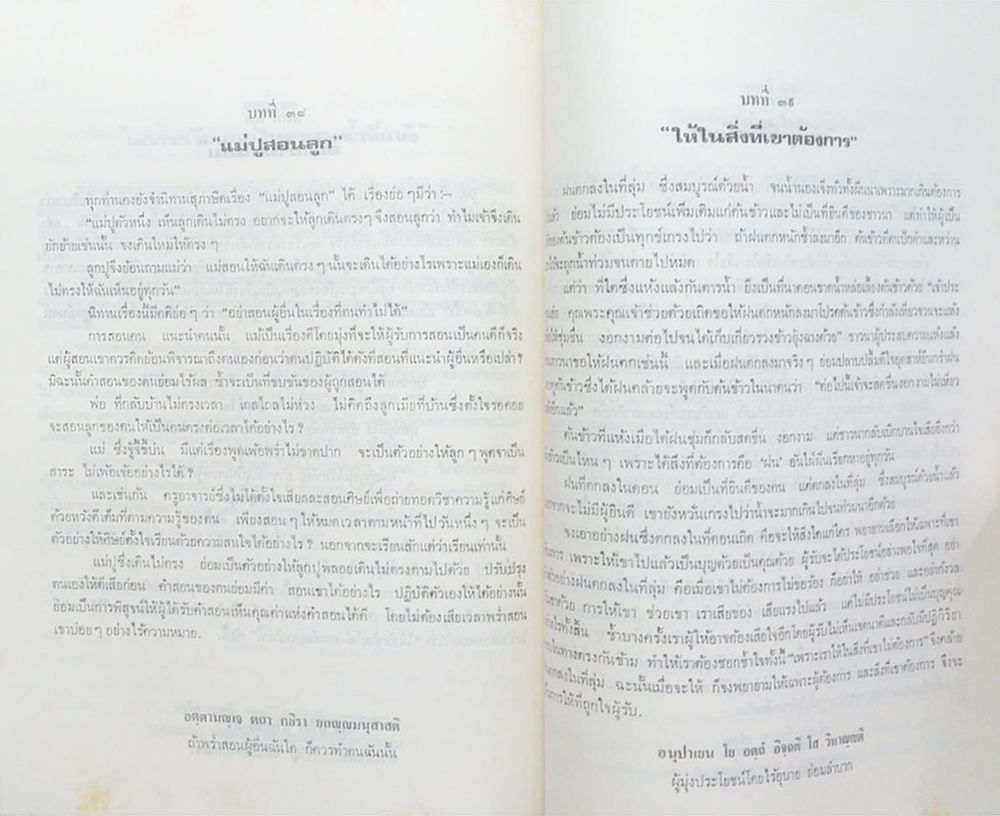 บทที่ ๓๘
“แม่ปูสอนลูก”
ทุกท่านคงยังจำนิทานสุภาษิตเรื่อง “แม่ปูสอนลูก” ได้ เรื่องย่อ ๆมีว่า :–
“แม่ปูตัวหนึ่ง เห็นลูกเดินไม่ตรง อยากจะให้ลูกเดินตรงๆ จึงสอนลูกว่า ทำไมเจ้าจึงเดิน
ยักย้ายเช่นนั้น จงเดินใหม่ให้ตรง ๆ
ลูกปูจึงย้อนถามแม่ว่า แม่สอนให้ฉันเดินตรง ๆ นั้นจะเดินได้อย่างไรเพราะแม่เองก็เดิน
ไม่ตรงให้ฉันเห็นอยู่ทุกวัน”
นิทานเรื่องนี้มีคติย่อ ๆ ว่า “อย่าสอนผู้อื่นในเรื่องที่ตนทำไม่ได้”
การสอนคน แนะนำคนนั้น แม้เป็นเรื่องดีโดยมุ่งที่จะให้ผู้รับการสอนเป็นคนดีก็จริง
แต่ผู้สอนเขาควรคิดย้อนพิจารณาถึงตนเองก่อนว่าตนปฏิบัติได้ดังที่สอนที่แนะนำผู้อื่นหรือเปล่า?
มิฉะนั้นคำสอนของตนย่อมไร้ผล ซ้ำจะเป็นที่ขบขันของผู้ถูกสอนได้
พ่อ ที่กลับบ้านไม่ตรงเวลา เถลไถลไม่ห่วง ไม่คิดถึงลูกเมียที่บ้านซึ่งตั้งใจรอคอย
จะสอนลูกของตนให้เป็นคนตรงต่อเวลาได้อย่างไร ?
แม่ ซึ่งจู้จี้ขี้บ่น มีแต่เรื่องพูดเพ้อพร่ำไม่ขาดปาก จะเป็นตัวอย่างให้ลูก ๆ พูดจาเป็น
สาระ ไม่เพ้อเจ้ออย่างไรได้ ?
และเช่นกัน ครูอาจารย์ซึ่งไม่ได้ตั้งใจเสียสละสอนศิษย์เพื่อถ่ายทอดวิชาความรู้แก่ศิษย์
ด้วยหวังดีเต็มที่ตามความรู้ของตน เพียงสอน ๆ ให้หมดเวลาตามหน้าที่ไปวันหนึ่ง ๆ จะเป็น
ตัวอย่างให้ศิษย์ตั้งใจเรียนด้วยความสนใจได้อย่างไร ? นอกจากจะเรียนสักแต่ว่าเรียนเท่านั้น
แม่ปูซึ่งเดินไม่ตรง ย่อมเป็นตัวอย่างให้ลูกปูพลอยเดินไม่ตรงตามไปด้วย ปรับปรุง
ตนเองให้ดีเสียก่อน คำสอนของตนย่อมมีค่า สอนเขาได้อย่างไร ปฏิบัติตัวเองให้ได้อย่างนั้น
ย่อมเป็นการพิสูจน์ให้ผู้ได้รับคำสอนเห็นคุณค่าแห่งคำสอนได้ดี โดยไม่ต้องเสียเวลาพร่ำสอน
เขาบ่อยๆ อย่างไร้ความหมาย.
อตฺตานญฺเจ ตถา กยิรา ยถญฺญมนุสาสติ
ถ้าพร่ำสอนผู้อื่นฉันใด ก็ควรทำตนฉันนั้น
บทที่ ๓๙
“ให้ในสิ่งที่เขาต้องการ”
ฝนตกลงในที่ลุ่ม ซึ่งสมบูรณ์ด้วยน้ำ จนน้ำนองเจิ่งทั่วทั้งผืนนาเพราะมากเกินต้องการ
แล้ว ย่อมไม่มีประโยชน์เพิ่มเติมแก่ต้นข้าวและไม่เป็นที่ยินดีของชาวนา แต่ทำให้ผู้เป็น
ของต้นข้าวต้องเป็นทุกข์เกรงไปว่า ถ้าฝนตกหนักซ้ำลงมาอีก ต้นข้าวที่ตนปักดำและหว่าน
ไว้จะถูกน้ำท่วมจนตายไปหมด
แต่ว่า ที่ใดซึ่งแห้งแล้งกันดารน้ำ ยิ่งเป็นที่นาดอนขาดน้ำหล่อเลี้ยงต้นข้าวด้วย “เจ้าประ
คุณเอ๋ย คุณพระคุณเจ้าช่วยด้วยเถิดขอให้ฝนตกหนักลงมาโปรดต้นข้าวซึ่งกำลังเหี่ยวจวนจะแห้ง
ให้ชุ่มชื่น งอกงามต่อไปจนได้เก็บเกี่ยวรวงข้าวยุ้งฉางด้วย” ชาวนาผู้ประสบความแห้งแล้ง
ภาวนาขอให้ฝนตกเช่นนี้ และเมื่อฝนตกลงมาจริงๆ ย่อมปลาบปลื้มดีใจ
พูดต้นข้าวซึ่งได้ฝนคล้ายจะพูดกับต้นข้าวในนาตนว่า “ต่อไปนี้เจ้าจะสดชื่นงอกงามไม่เหี่ยว
แห้งอีกแล้ว”
ต้นข้าวที่แห้งเมื่อได้ฝนชุ่มก็กลับสดชื่น งอกงาม แต่ชาวนากลับเบิกบานใจเสียยิ่งกว่า
ต้นข้าวเป็นไหนๆ เพราะได้สิ่งที่ต้องการคือ ‘ฝน’ อันไม่ผันเรียกหาอยู่ทุกวัน
ฝนที่ตกลงในดอน ย่อมเป็นที่ยินดีของคน แต่ตกลงในที่ลุ่ม ซึ่งสมบูรณ์ด้วยน้ำแล้ว
นอกจากจะไม่มีผู้ยินดี เขายังหวั่นเกรงไปว่าน้ำจะมากเกินไปจนท่วมนาอีกด้วย
จงเอาอย่างฝนซึ่งตกลงในที่ดอนเถิด คือจะให้สิ่งใดแก่ใคร พยายามเลือกให้เฉพาะที่เขา
ต้องการ เพราะให้เขาไปแล้วเป็นบุญด้วยเป็นคุณด้วย ผู้รับจะได้ประโยชน์อย่างพอใจที่สุด อย่า
เอาอย่างฝนตกลงในที่ลุ่ม คือเมื่อเขาไม่ต้องการไม่ขอร้อง ก็อย่าให้ อย่าช่วย และอย่ากังวล
เขาด้วย การให้เขา ช่วยเขา เราเสียของ เสียแรงไปแล้ว แต่ไม่มีประโยชน์ไม่เป็นบุญคุณ
อะไรทั้งสิ้น ซ้ำบางครั้งเราผู้ให้อาจต้องเสียใจอีกโดยผู้รับไม่เห็นเจตนาดีและกลับมีปฏิกิริยา
ไปในทางตรงกันข้าม ทำให้เราต้องชอกช้ำใจทั้งนี้ “เพราะเราให้ในสิ่งที่เขาไม่ต้องการ” จึงคล้าย
ฝนตกลงในที่ลุ่ม ฉะนั้นเมื่อจะให้ ก็จงพยายามให้เฉพาะผู้ต้องการ และสิ่งที่เขาต้องการ จึงจะ
เป็นการให้ที่ถูกใจผู้รับ.
อนุปาเยน โย อตฺถํ อิจฺฉติ โส วิหญฺญติ
ผู้มุ่งประโยชน์โดยไร้อุบาย ย่อมลำบาก